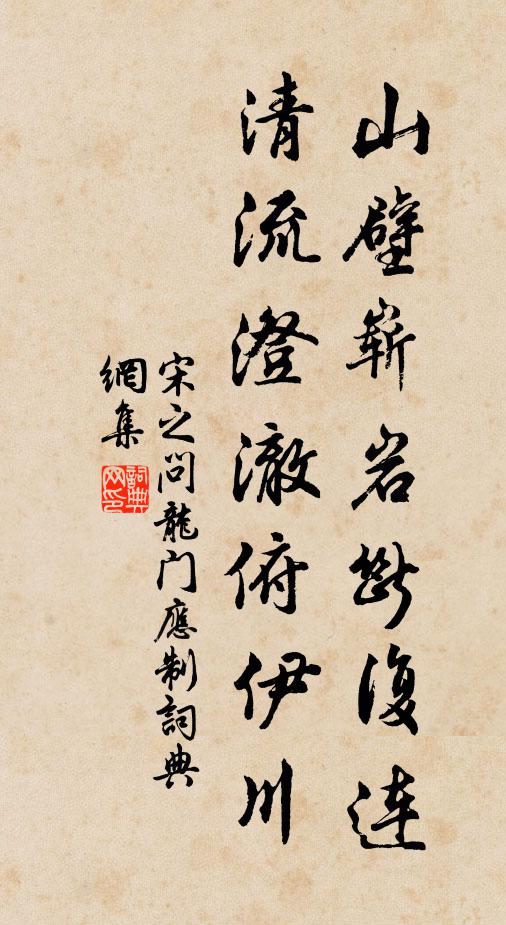 山壁嶄岩斷復連
清流澄澈俯伊川
宋之問龍门應制詞典
網集
詞典
网印